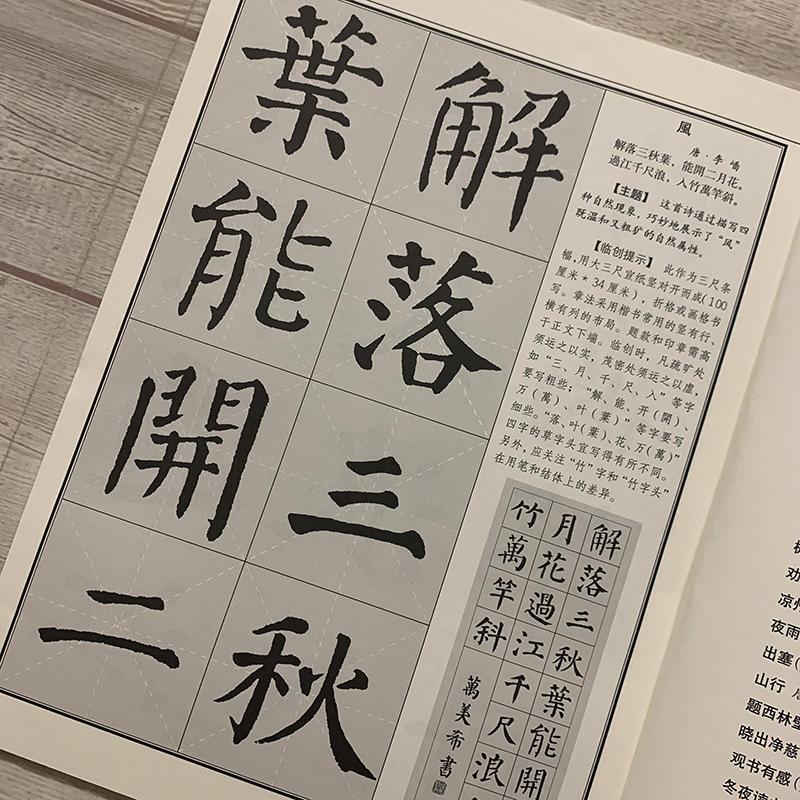 解落三秋
葉能開二
風
唐·李嶠
解落三秋葉，能開二月花。
過江千尺浪，入竹萬竿斜。
【主题】 这首诗通过描写四
种自然现象，巧妙地展示了“风”
既温和又粗犷的自然属性。
【临创提示】 此作为三尺条
幅，用大三尺宣纸竖对开而成(100
厘米*34厘米)，折格或画格书
写。章法采用楷书常用的竖有行、
横有列的布局。题款和印章需高
于正文下端。临创时，凡疏旷处
须运之以实，茂密处须运之以虚，
如“三、月、千、尺、入”等字
要写粗些；“解、能、开(開)、
万(萬)、叶(葉)”等字要写
细些。“落、叶(葉)、花、万(萬)”
四字的草字头宜写得有所不同。
另外，应关注“竹”字和“竹字头”
在用笔和结体上的差异。
解落三秋葉能開
月花過江千尺浪
竹萬竿斜
萬美希書
劝
凉州
夜雨
出塞(
山行
题西林壁
晓出净慈
观书有感(
冬夜读